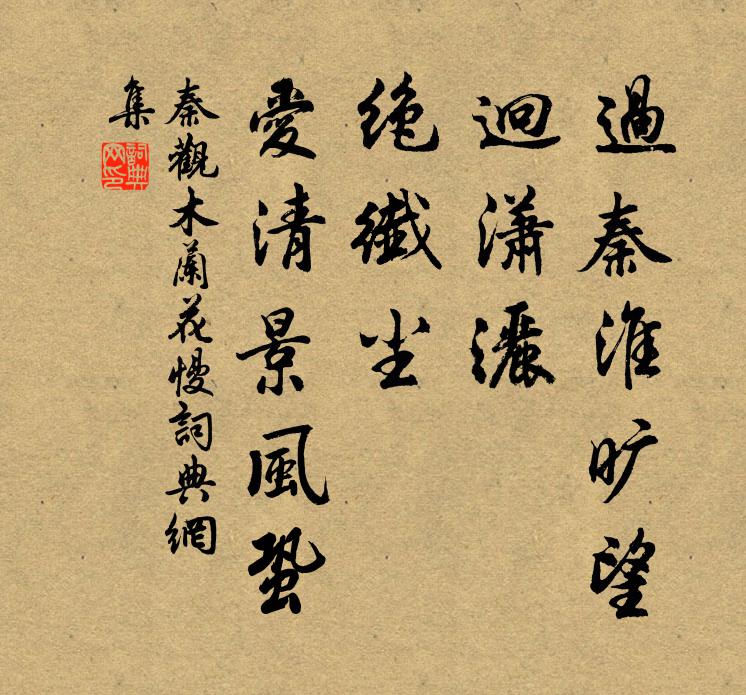 過秦淮旷望
迥瀟灑
絶纖尘
愛清景風蛩
秦觀木蘭花慢詞典網
集
詞典
网印